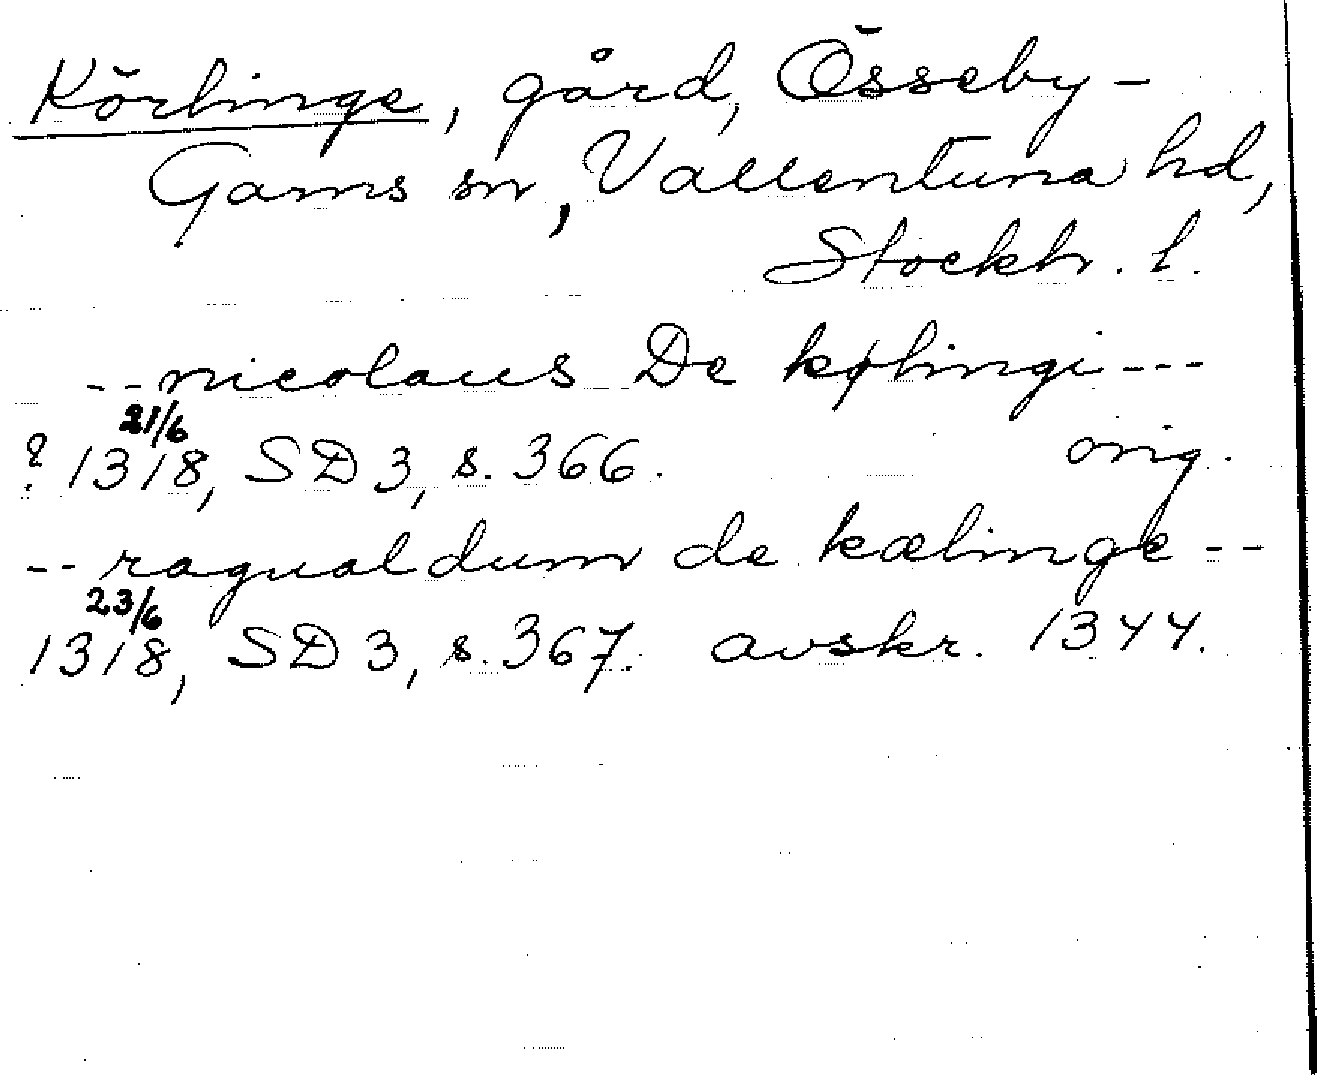 Körlinge, gård, Össeby-
Garns sn, Vallentuna hd,
Stockh. l.
-- nicolaus De kølingi ---
? 21/6 1318, SD 3, s. 366. orig.
-- ragualdum de kælinge --
23/6 1318, SD 3, s. 367. avskr. 1344.